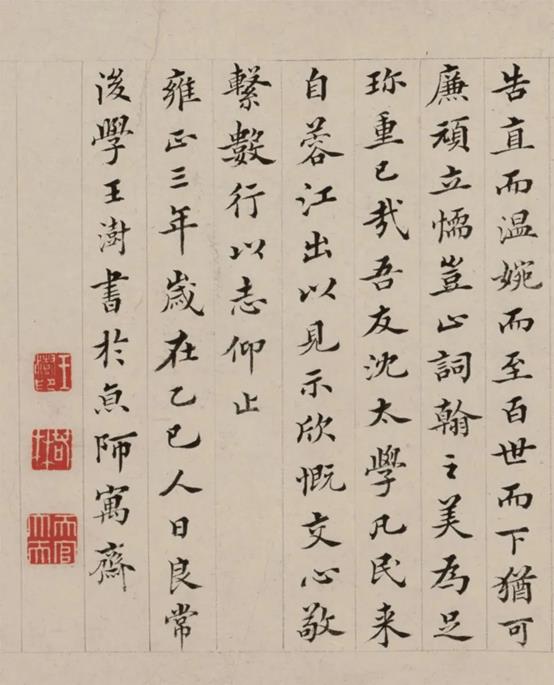 告直而温婉而至百世而下猶可
廉頑立懦豈止詞翰之美為足
珎重已哉吾友沈太學凡民来
自蓉江出以見示欣慨交心敬
繋數行以志仰止
雍正三年歲在乙巳人日良常
後學王澍書於京師寓齋
王澍印